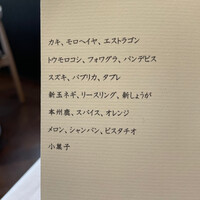 カキ、モロヘイヤ、エストラゴン
トウモロコシ、フォワグラ、パンデピス
スズキ、パプリカ、タブレ
新玉ネギ、リースリング、新しょうが
本州鹿、スパイス、オレンジ
メロン、シャンパン、ピスタチオ
小菓子